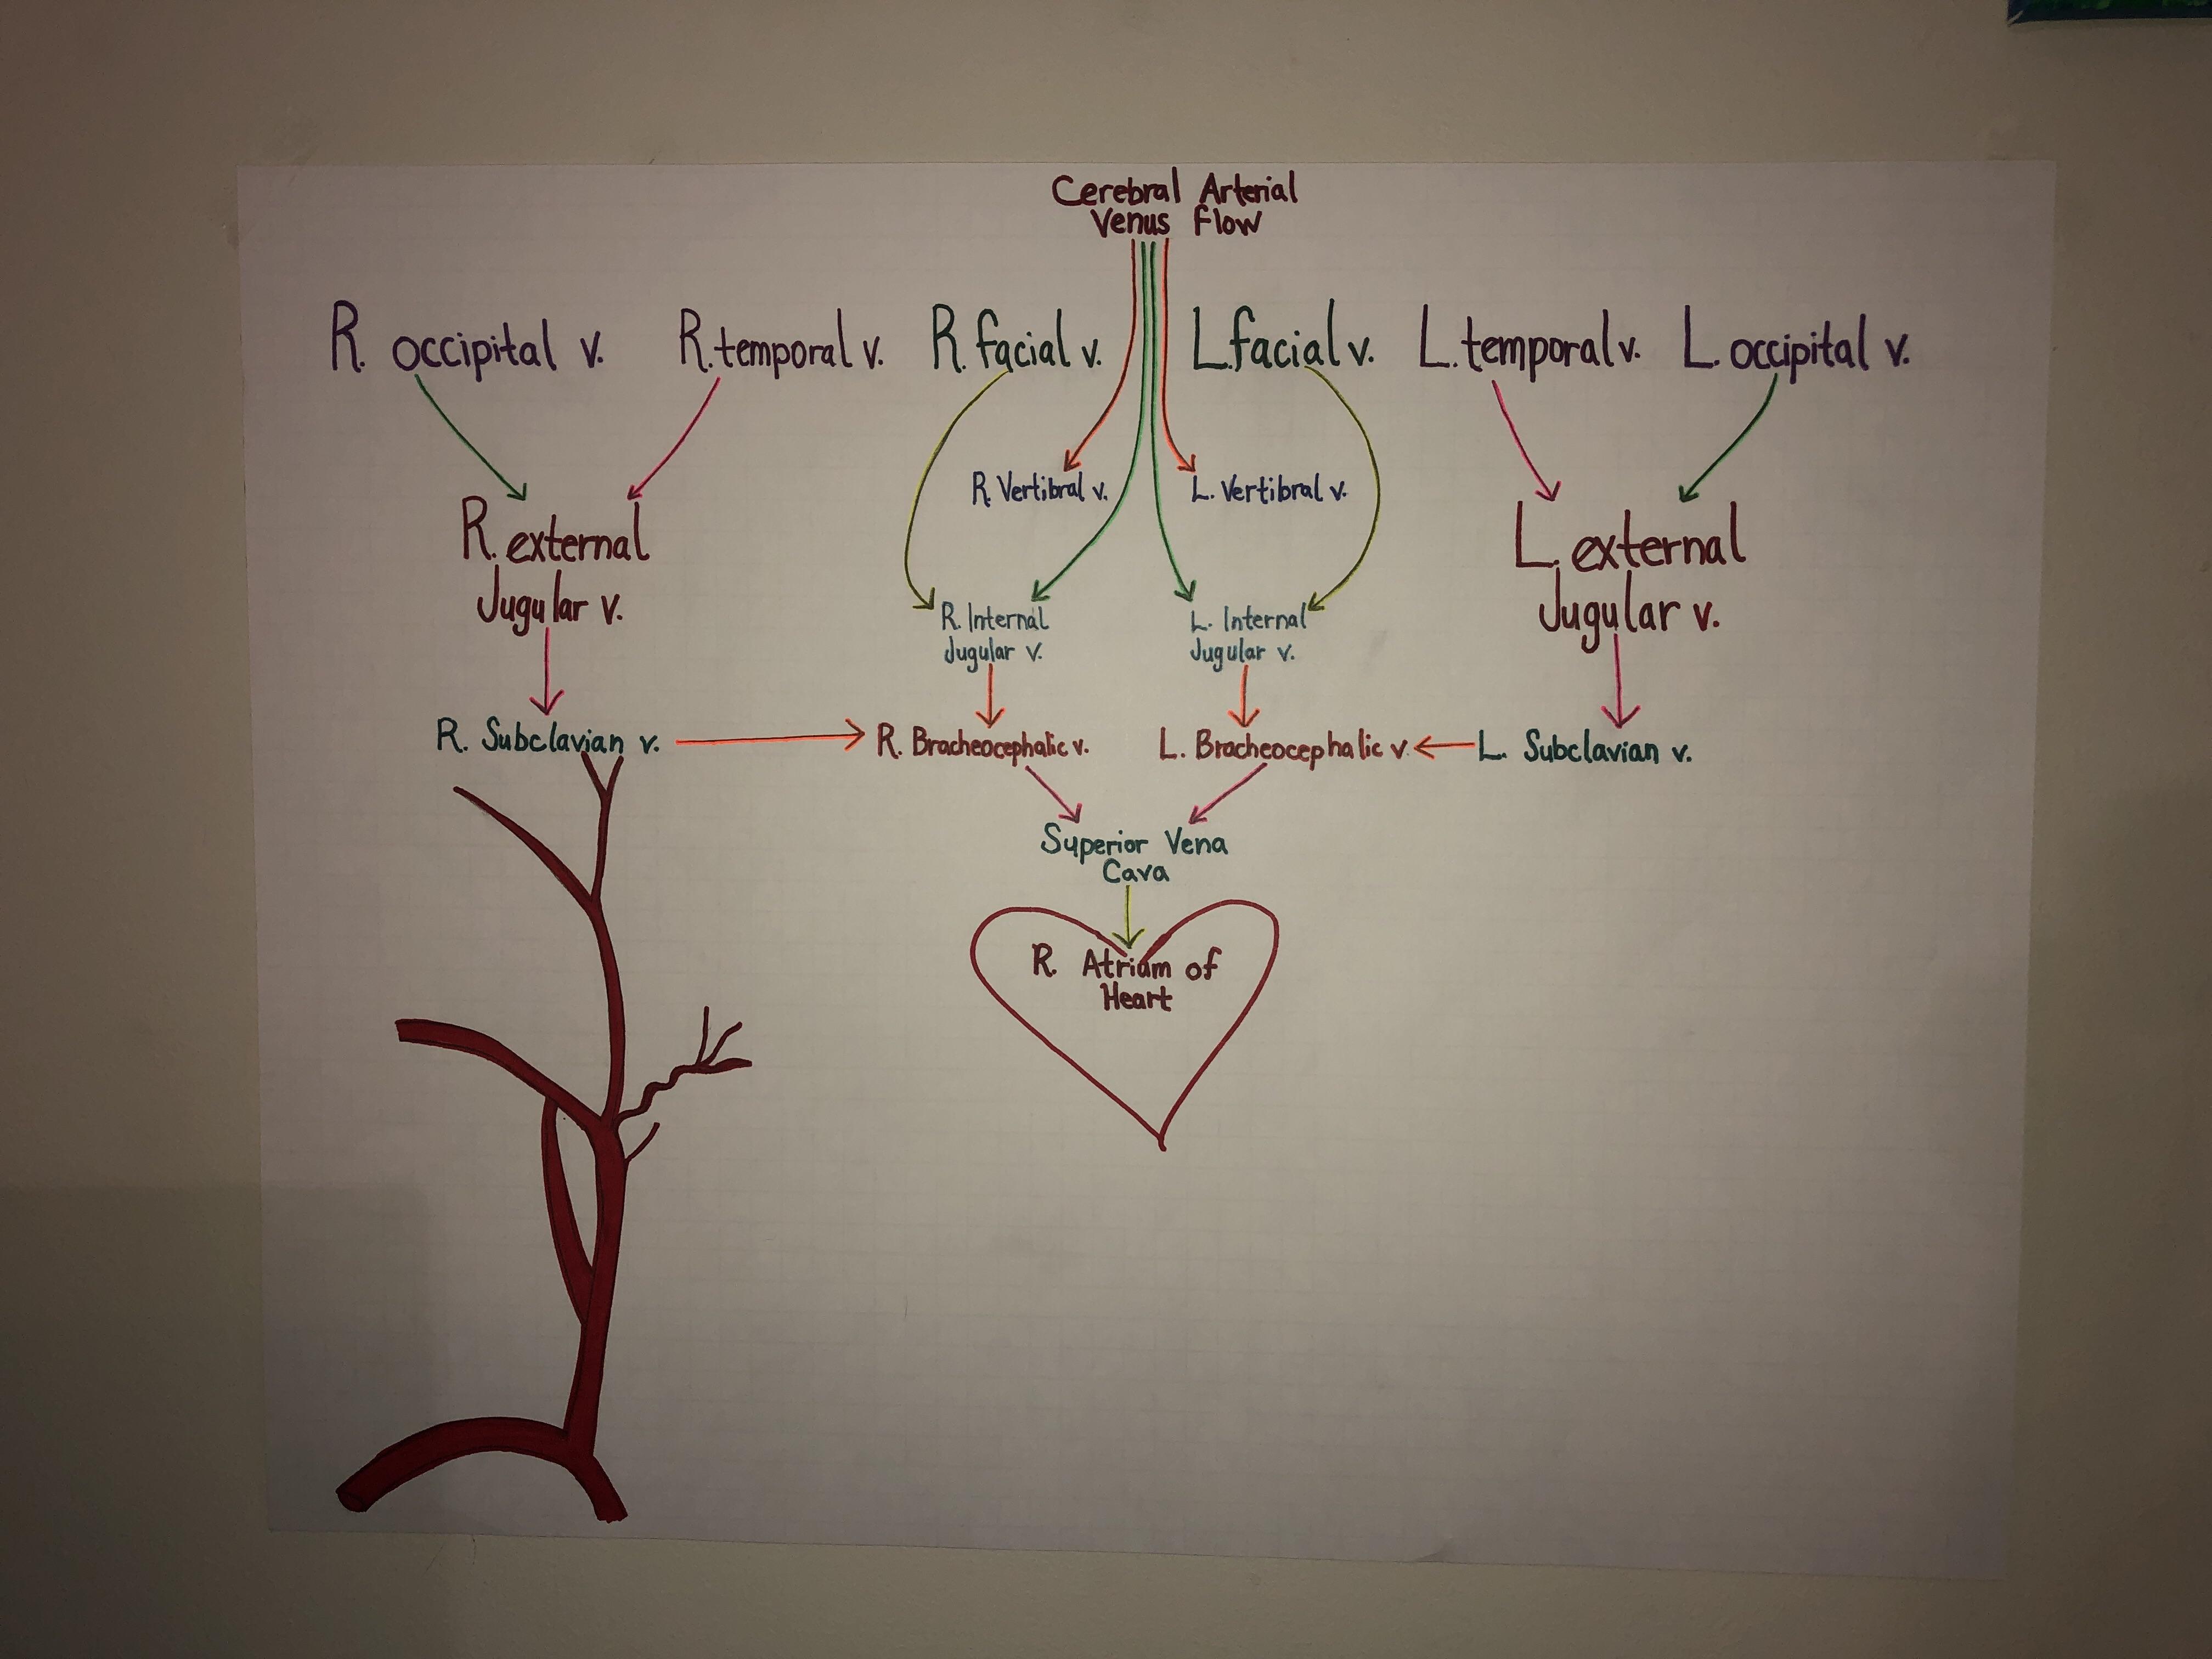 Cerebral Arterial
Venus Flow
R. occipital v. R. temporal v. R. facial v. L. facial v. L. temporal v. L. occipital v.
R. Vertibral v. L. Vertibral v.
R. external
Jugular v.
L. external
Jugular v.
R. Internal
Jugular v.
L. Internal
Jugular v.
R. Subclavian v. R. Bracheocephalic v. L. Bracheocephalic v. L. Subclavian v.
Superior Vena
Cava
R. Atrium of
Heart